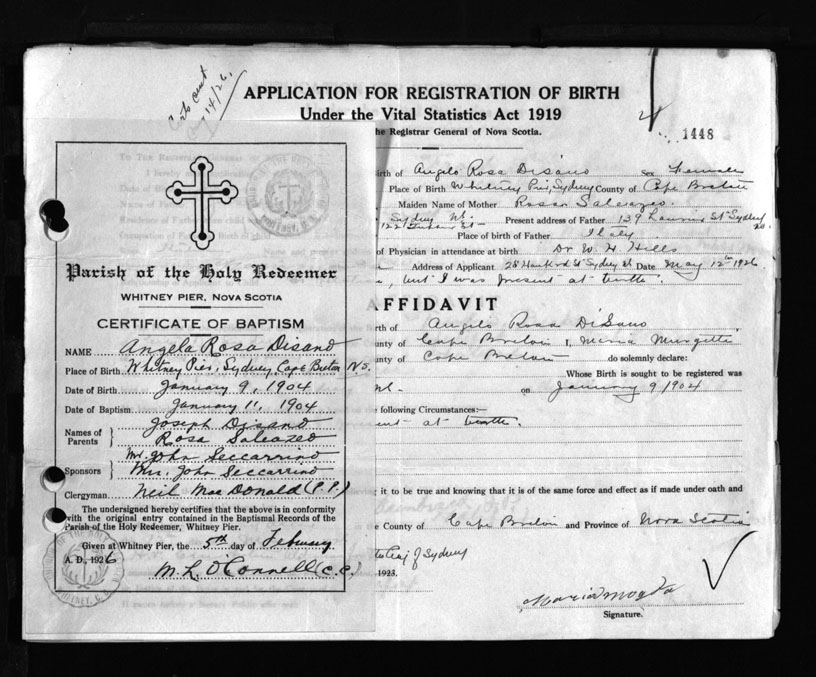 APPLICATION FOR REGISTRATION OF BIRTH
Under the Vital Statistics Act 1919
the Registrar General of Nova Scotia.
1448
14/26.
Birth of Angelo Rosa DiSano Sex Female
Place of Birth Whitney Pier, Sydney County of Cape Breton
Maiden Name of Mother Rosa
Sydney Present address of Father 139 St Sydney
Place of birth of Father Italy
of Physician in attendance at birth Dr W. H. Hills
Address of Applicant 28 St Sydney Date May 12th 1926
but I was present at birth.
AFFIDAVIT
Birth of Angelo Rosa DiSano
County of Cape Breton I,
County of Cape Breton do solemnly declare:
Whose Birth is sought to be registered was
on January 9 1904
following Circumstances:—
at birth.
it to be true and knowing that it is of the same force and effect as if made under oath and
the County of Cape Breton and Province of Nova Scotia
of Sydney
1923.
Signature.
Parish of the Holy Redeemer
WHITNEY PIER, NOVA SCOTIA
CERTIFICATE OF BAPTISM
NAME Angela Rosa Disano
Place of Birth Whitney Pier, Sydney Cape Breton N.S.
Date of Birth January 9, 1904
Date of Baptism January 1, 1904
Names of Parents Joseph Disano
Rosa Saleazeo
Sponsors Mr. John Seccarrino
Mrs. John Seccarrino
Clergyman Neil MacDonald (P.P.)
The undersigned hereby certifies that the above is in conformity
with the original entry contained in the Baptismal Records of the
Parish of the Holy Redeemer, Whitney Pier.
Given at Whitney Pier, the 5th day of February
A. D., 1926
M. L. O'Connell (C.C.)